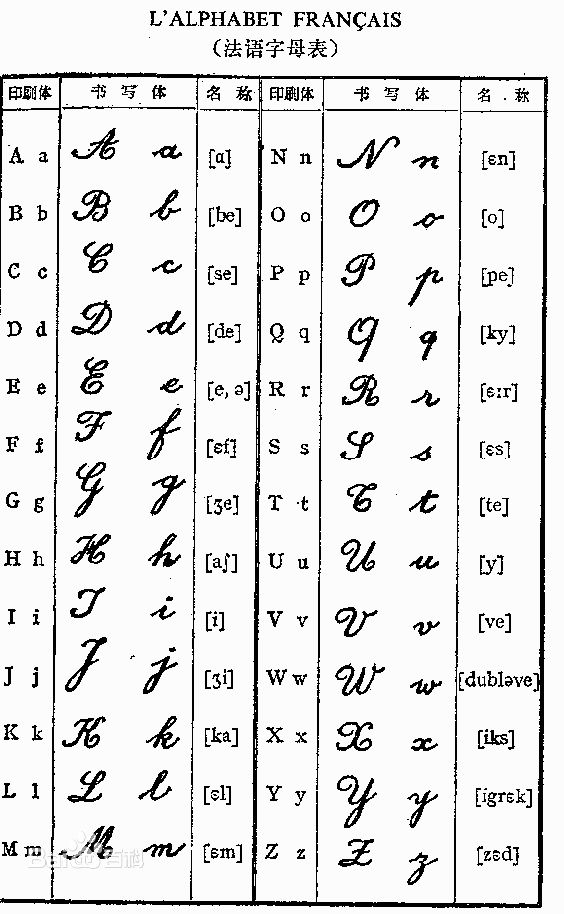 L'ALPHABET FRANÇAIS
（法语字母表）
印刷体 书写体 名称 印刷体 书写体 名称
A a A a [ɑ] N n N n [ɛn]
B b B b [be] O o O o [o]
C c C c [se] P p P p [pe]
D d D d [de] Q q Q q [ky]
E e E e [e, ə] R r R r [ɛ:r]
F f F f [ɛf] S s S s [ɛs]
G g G g [ʒe] T t T t [te]
H h H h [aʃ] U u U u [y]
I i I i [i] V v V v [ve]
J j J j [ʒi] W w W w [dubləve]
K k K k [ka] X x X x [iks]
L l L l [ɛl] Y y Y y [igrɛk]
M m M m [ɛm] Z z Z z [zɛd]
Bai 百科